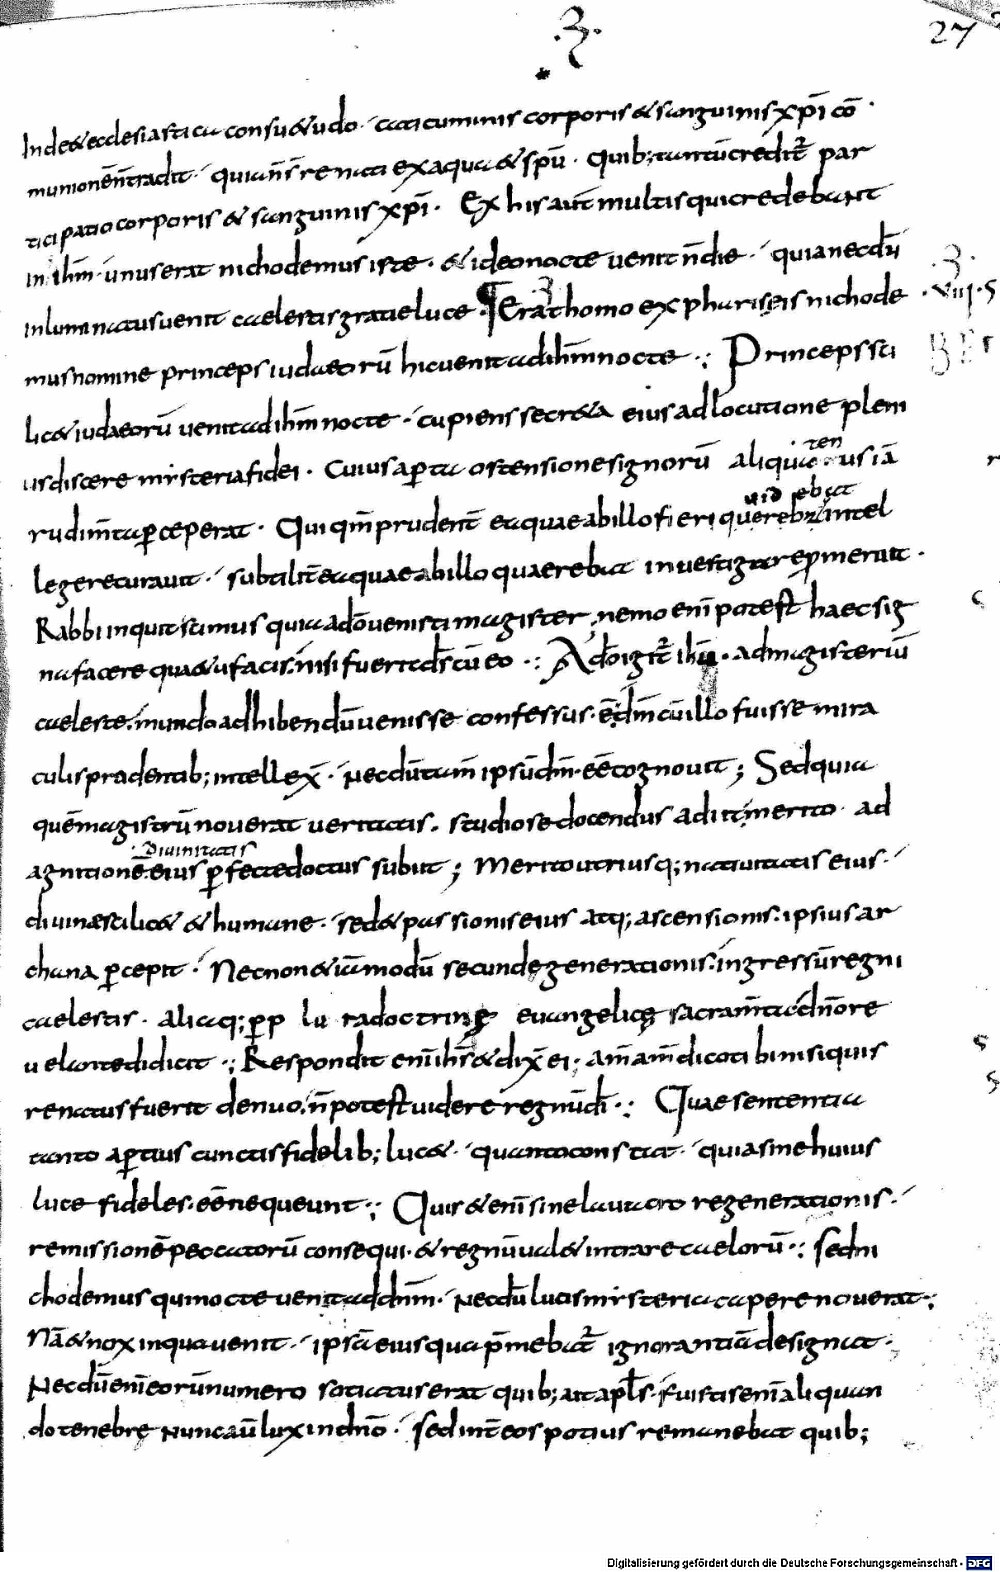 ·Ʒ·
27
Inde & ecclesiastica consu&udo · catacuminis corporis & sanguinis xp̄i cō
munionēn̄tradit · quian̄s̄renati exaqua & sp̄u · Quib; tantūcredit̄ par
ticipatio corporis & sanguinis xp̄i · Ex his aut̄ multis quicredebant
in ih̄m · unus erat nichodemus iste · & ideo nocte uenit n̄ die · quia necdū
inluminatus uenit caelestis gratie luce · Erat homo ex phariseis nichode
mus nomine princeps iudaeorū hic uenit ad ih̄m nocte ·: Princeps sci
lic& iudaeorū uenit ad ih̄m nocte · cupiens secr&a eius adlocutione pleni
us discere mysteria fidei · Cuius aperta ostensione signorū aliqua ten us iā
rudim̄ta p̱ceperat · Qui qm̄ prudent̄ ea quae ab illo fieri uidebat intel
legere curauit · subtilit̄ ea quae ab illo quaerebat inuestigare p̱meruit ·
Rabbi inquit scimus quia ad̄o uenisti magister, nemo eni͞ potest haec sig
na facere quae tu facis · nisi fuerit d̄s cū eo ·: Ad̄o igit̄ ih̄u · ad magisteriū
caeleste · mundo adhibendū uenisse confessus · & dm̄ cū illo fuisse mira
culis pradentib; intellex̄ · necdū tam̄ ipsū dm̄ · eē cognouit ; Sed quia
quē magistrū nouerat ueritatis · studiose docendus adiit; merito ad
Diuinitatis
agnitionē eius p̱fecte doctus subiit ; Merito utriusq; natiuitatis eius ·
diuinae scilic& & humane · sed & passionis eius atq; ascensionis · ipsius ar
chana p̱cepit · Necnon & iā modū secunde generationis · ingressū regni
caelestis · aliaq; p̱p lu ra doctrinę euangelicę sacram̄ta dn̄o re
uelante didicit ·: Respondit eni͞ ih̄s & dix̄ ei · am̄ am̄ dico tibi nisi quis
renatus fuerit denuo · n̄ potest uidere regnū dī ·: Quae sententia
tanto ap̱tius cunctis fidelib; luc& · quanto constat · quia sine huius
luce fideles · eē nequeunt ·: Quis & eni͞ sine lauacro regenerationis ·
remissionē peccatorū consequi · & regnū ual& intrare caelorū ·: sed ni
chodemus qui nocte uenit ad dn̄m · necdū lucis mysteria capere nouerat ·:
Nā & nox in qua uenit · ipsā eius qua p̄mebat̄ ignorantiā designat ·
Necdū eni͞ eorū numero sotiatus erat quib; ait apl̄s · fuistis eni͞ aliquan
do tenebrę nunc aū lux in dn̄o · sed int̄ eos potius remanebat quib;
Digitalisierung gefördert durch die Deutsche Forschungsgemeinschaft · DFG